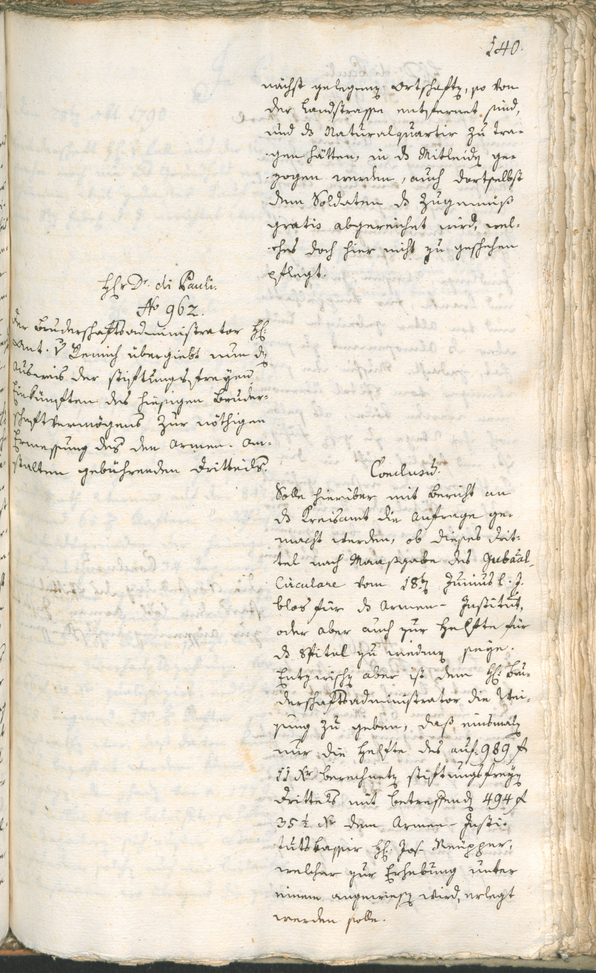 140.
nächst gelegenen Ortschaften, so von
der Landstrasse entfernet sind,
und ds Naturalquartir zu tra-
gen hätten, in ds Mitleiden ge-
zogen werden, auch dortselbst
dem Soldaten ds Zugemüß
gratis abgereichet wird, wel-
ches doch hier nicht zu geschehen
pflegt.
Hh Dr. di Pauli.
No 962.
Der Bruderschaftsadministrator Hh
Ant. v übergiebt nun den
Ausweis der stiftungsfreyen
Einkünften des hiesigen Bruder-
schaftsvermögens zur nöthigen
Ermessung des den Armen-An-
stalten gebührenden Dritteils.
Conclusum.
Solle hierüber mit Bericht an
ds Kreisamt die Anfrage ge-
macht werden, ob dieses Drit-
tel nach Maaßgabe des Gubãal-
Circulare vom 18ten Junius l: J.
blos für ds Armen-Institut,
oder aber auch zur Helfte für
ds Spital zu seye.
Entzwischen aber ist dem Hh Bru-
derschaftsadministrator die Wei-
sung zu geben, daß einsmalen
nur die Helfte des auf 989 f
11 Kr berechneten stiftungsfreyen
Drittels mit betreffenden 494 f
35½ Kr dem Armen-Insti-
tutskassier Hh Jos.
welcher zur Erhebung unter
einem angewiesen wird, erlegt
werden solle.